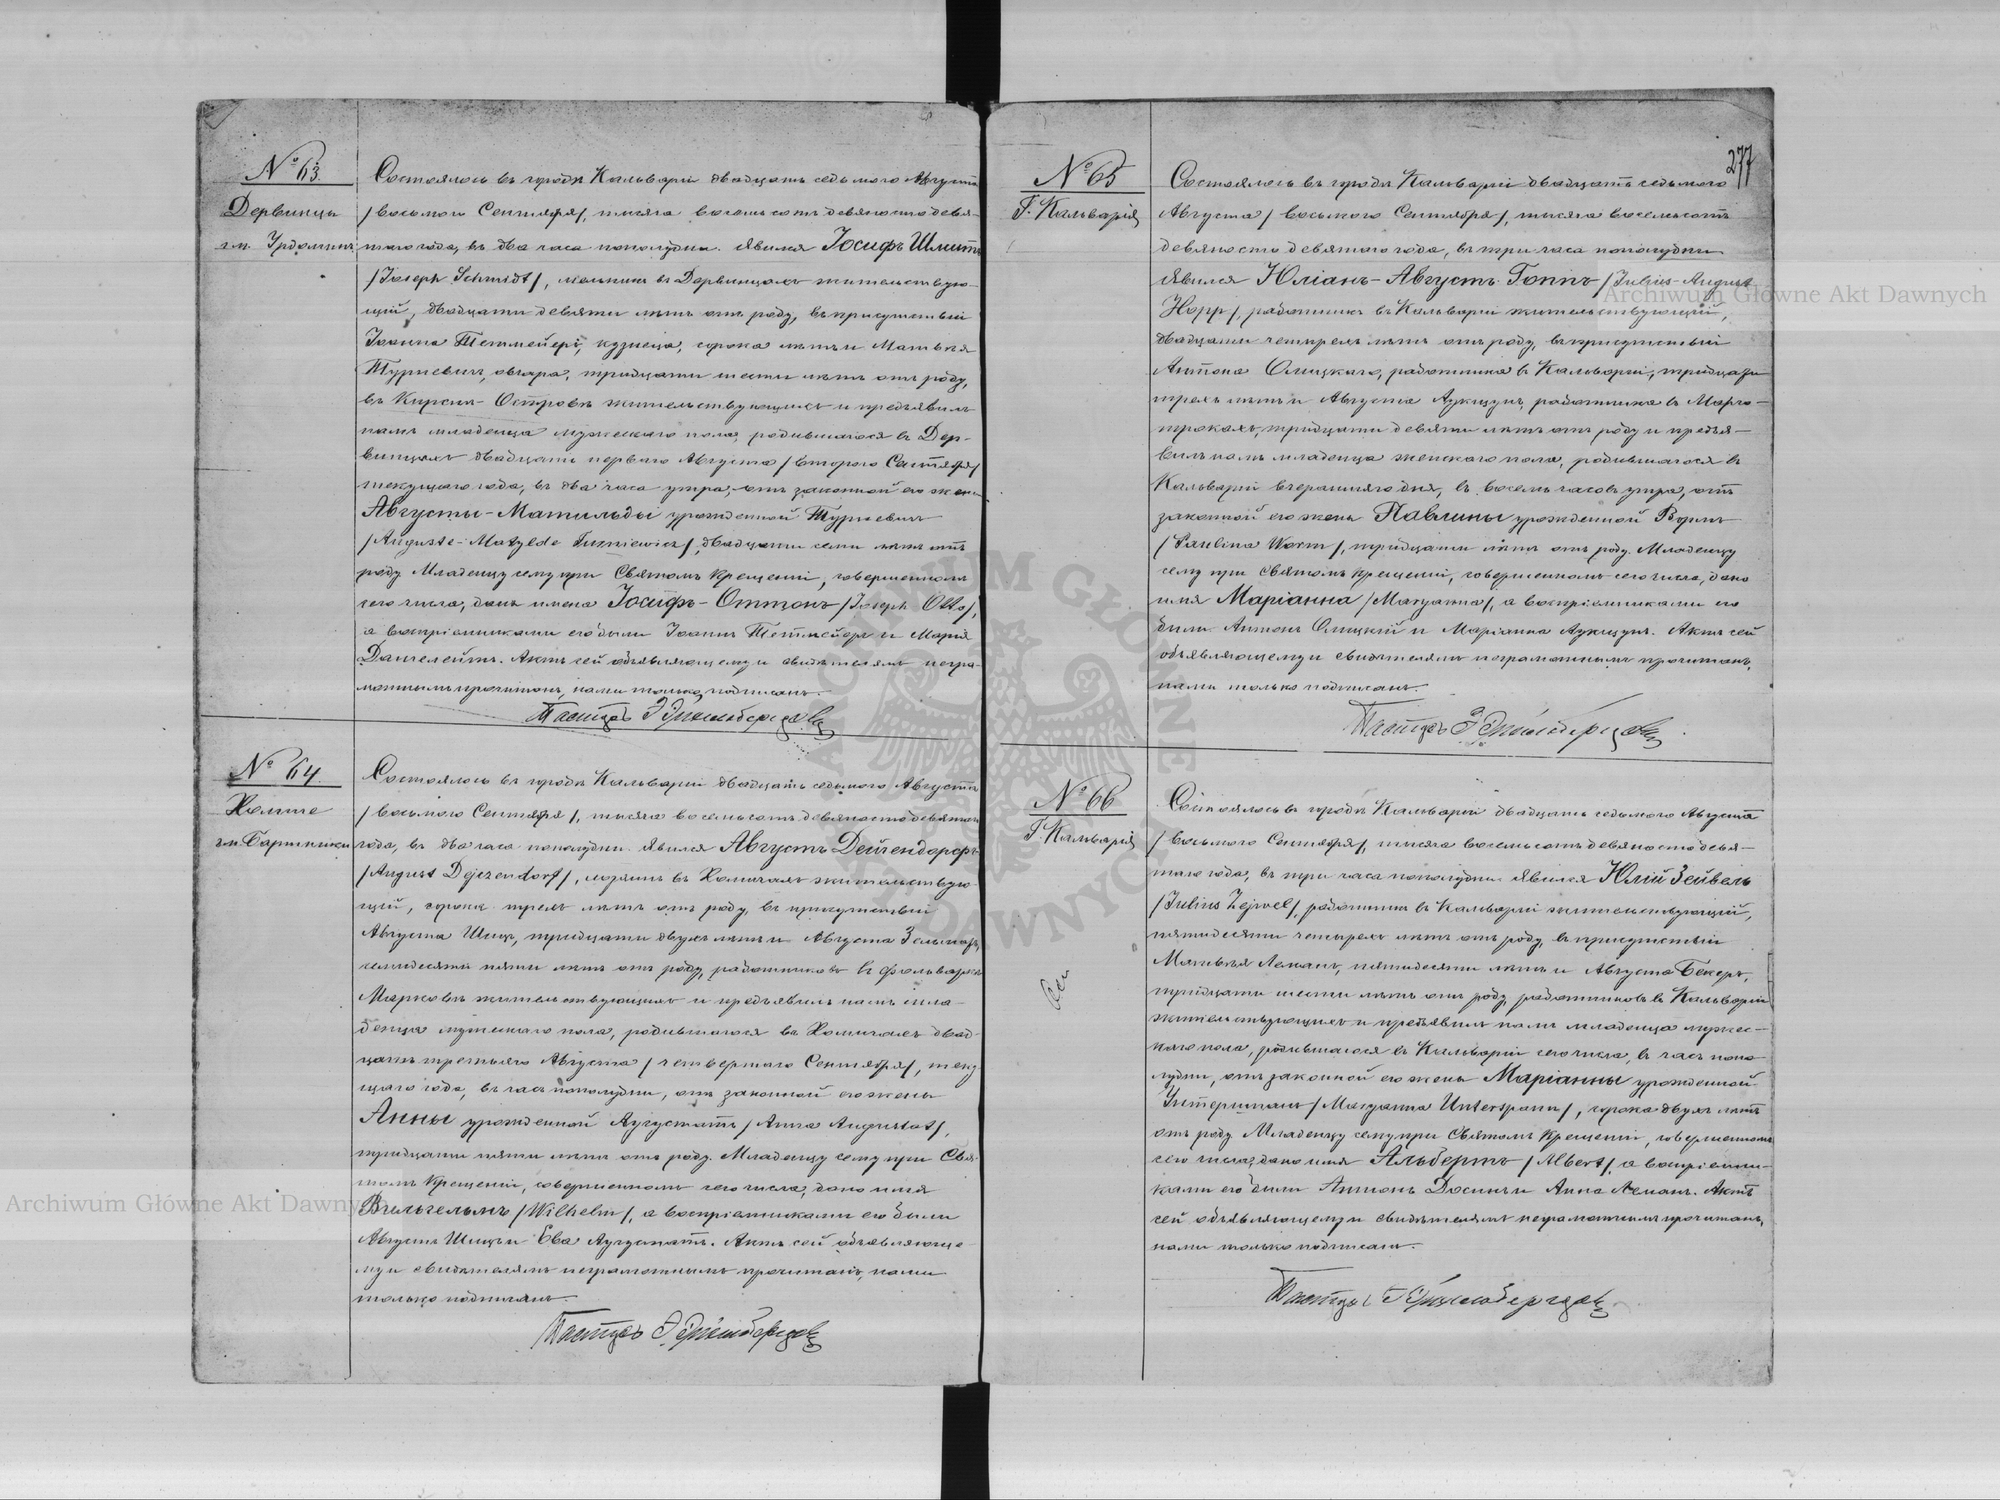 277
№ 63.
Дервинцы
гм. Урдоминъ
Состоялось въ городѣ Кальваріи двадцать седьмого Августа
/восьмого Сентября/, тысяча восемьсотъ девяносто девя-
таго года, въ два часа пополудни. Явился Іосифъ Шмитъ
/Joseph Schmidt/, мельникъ въ Дервинцахъ жительствую-
щій, двадцати девяти лѣтъ отъ роду, въ присутствіи
Іоанна Тетмейеръ, кузнеца, сорока лѣтъ и Матвѣя
Турневичъ, овчара, тридцати шести лѣтъ отъ роду,
въ Кирсна-Островѣ жительствующихъ и предъявилъ
намъ младенца мужескаго пола, родившагося въ Дер-
винцахъ двадцать перваго Августа /второго Сентября/
текущаго года, въ два часа утра, отъ законной его жены
Августы-Матильды урожденной Турневичъ
/Auguste-Matylde Turniewicz/, двадцати семи лѣтъ отъ
роду. Младенцу сему при Святомъ Крещеніи, совершенномъ
сего числа, даны имена Іосифъ-Оттонъ /Joseph Otto/,
а воспріемниками его были Іоаннъ Тетмейеръ и Марія
Акты сей объявляющему и свидѣтелямъ негра-
мотнымъ прочитанъ, нами только подписанъ.
Пасторъ
№ 64.
гм. Бартники
Состоялось въ городѣ Кальваріи двадцать седьмого Августа
/восьмого Сентября/, тысяча восемьсотъ девяносто девятаго
года, въ два часа пополудни. Явился Августъ Дейзендорфъ
/August Dejezendorf/, въ жительствую-
щій, сорока трехъ лѣтъ отъ роду, въ присутствіи
Августа Шицъ, тридцати двухъ лѣтъ и Августа
семидесяти пяти лѣтъ отъ роду, работниковъ въ фольваркѣ
Марковѣ жительствующихъ и предъявилъ намъ мла-
денца мужескаго пола, родившагося въ двад-
цать третьяго Августа /четвертаго Сентября/, теку-
щаго года, въ часъ пополудни, отъ законной его жены
Анны урожденной Аугустатъ /Anna Augustat/,
тридцати пяти лѣтъ отъ роду. Младенцу сему при Свя-
томъ Крещеніи, совершенномъ сего числа, дано имя
Вильгельмъ /Wilhelm/, а воспріемниками его были
Августъ Шицъ и Ева Аугустатъ. Актъ сей объявляюще-
му и свидѣтелямъ неграмотнымъ прочитанъ, нами
только подписанъ.
Пасторъ
№ 65
Г. Кальварія
Состоялось въ городѣ Кальваріи двадцать седьмого
Августа /восьмого Сентября/, тысяча восемьсотъ
девяносто девятаго года, въ три часа пополудни
Явился Юліанъ-Августъ Гоппъ /Julius-August
Hopp/, работникъ въ Кальваріи жительствующій,
двадцати четырехъ лѣтъ отъ роду, въ присутствіи
Антона Олицкаго, работника въ Кальваріи, тридцати
трехъ лѣтъ и Августа работника въ
тридцати девяти лѣтъ отъ роду и предъя-
вилъ намъ младенца женскаго пола, родившагося въ
Кальваріи вчерашняго дня, въ восемь часовъ утра, отъ
законной его жены Павлины урожденной Вормъ
/Paulina Worm/, тридцати лѣтъ отъ роду. Младенцу
сему при Святомъ Крещеніи, совершенномъ сего числа, дано
имя Маріанна /Maryanna/, а воспріемниками его
были Антонъ Олицкій и Маріанна Актъ сей
объявляющему и свидѣтелямъ неграмотнымъ прочитанъ,
нами только подписанъ.
Пасторъ
№ 66
Г. Кальварія
Состоялось въ городѣ Кальваріи двадцать седьмого Августа
/восьмого Сентября/, тысяча восемьсотъ девяносто девя-
таго года, въ три часа пополудни. Явился Юлій Зейвель
/Julius Zejwel/, работникъ въ Кальваріи жительствующій,
пятидесяти четырехъ лѣтъ отъ роду, въ присутствіи
Матвѣя Леманъ, пятидесяти лѣтъ и Августа Бекеръ,
тридцати шести лѣтъ отъ роду, работниковъ въ Кальваріи
жительствующихъ и предъявилъ намъ младенца мужес-
каго пола, родившагося въ Кальваріи сего числа, въ часъ попо-
лудни, отъ законной его жены Маріанны урожденной
Унтершпанъ /Maryanna Unterspann/, сорока двухъ лѣтъ
отъ роду. Младенцу сему при Святомъ Крещеніи, совершенномъ
сего числа, дано имя Альбертъ /Albert/, а воспріемни-
ками его были Антонъ и Анна Леманъ. Актъ
сей объявляющему и свидѣтелямъ неграмотнымъ прочитанъ,
нами только подписанъ.
Пасторъ
Archiwum Główne Akt Dawnych
Archiwum Główne Akt Dawnych
ARCHIWUM GŁÓWNE AKT DAWNYCH